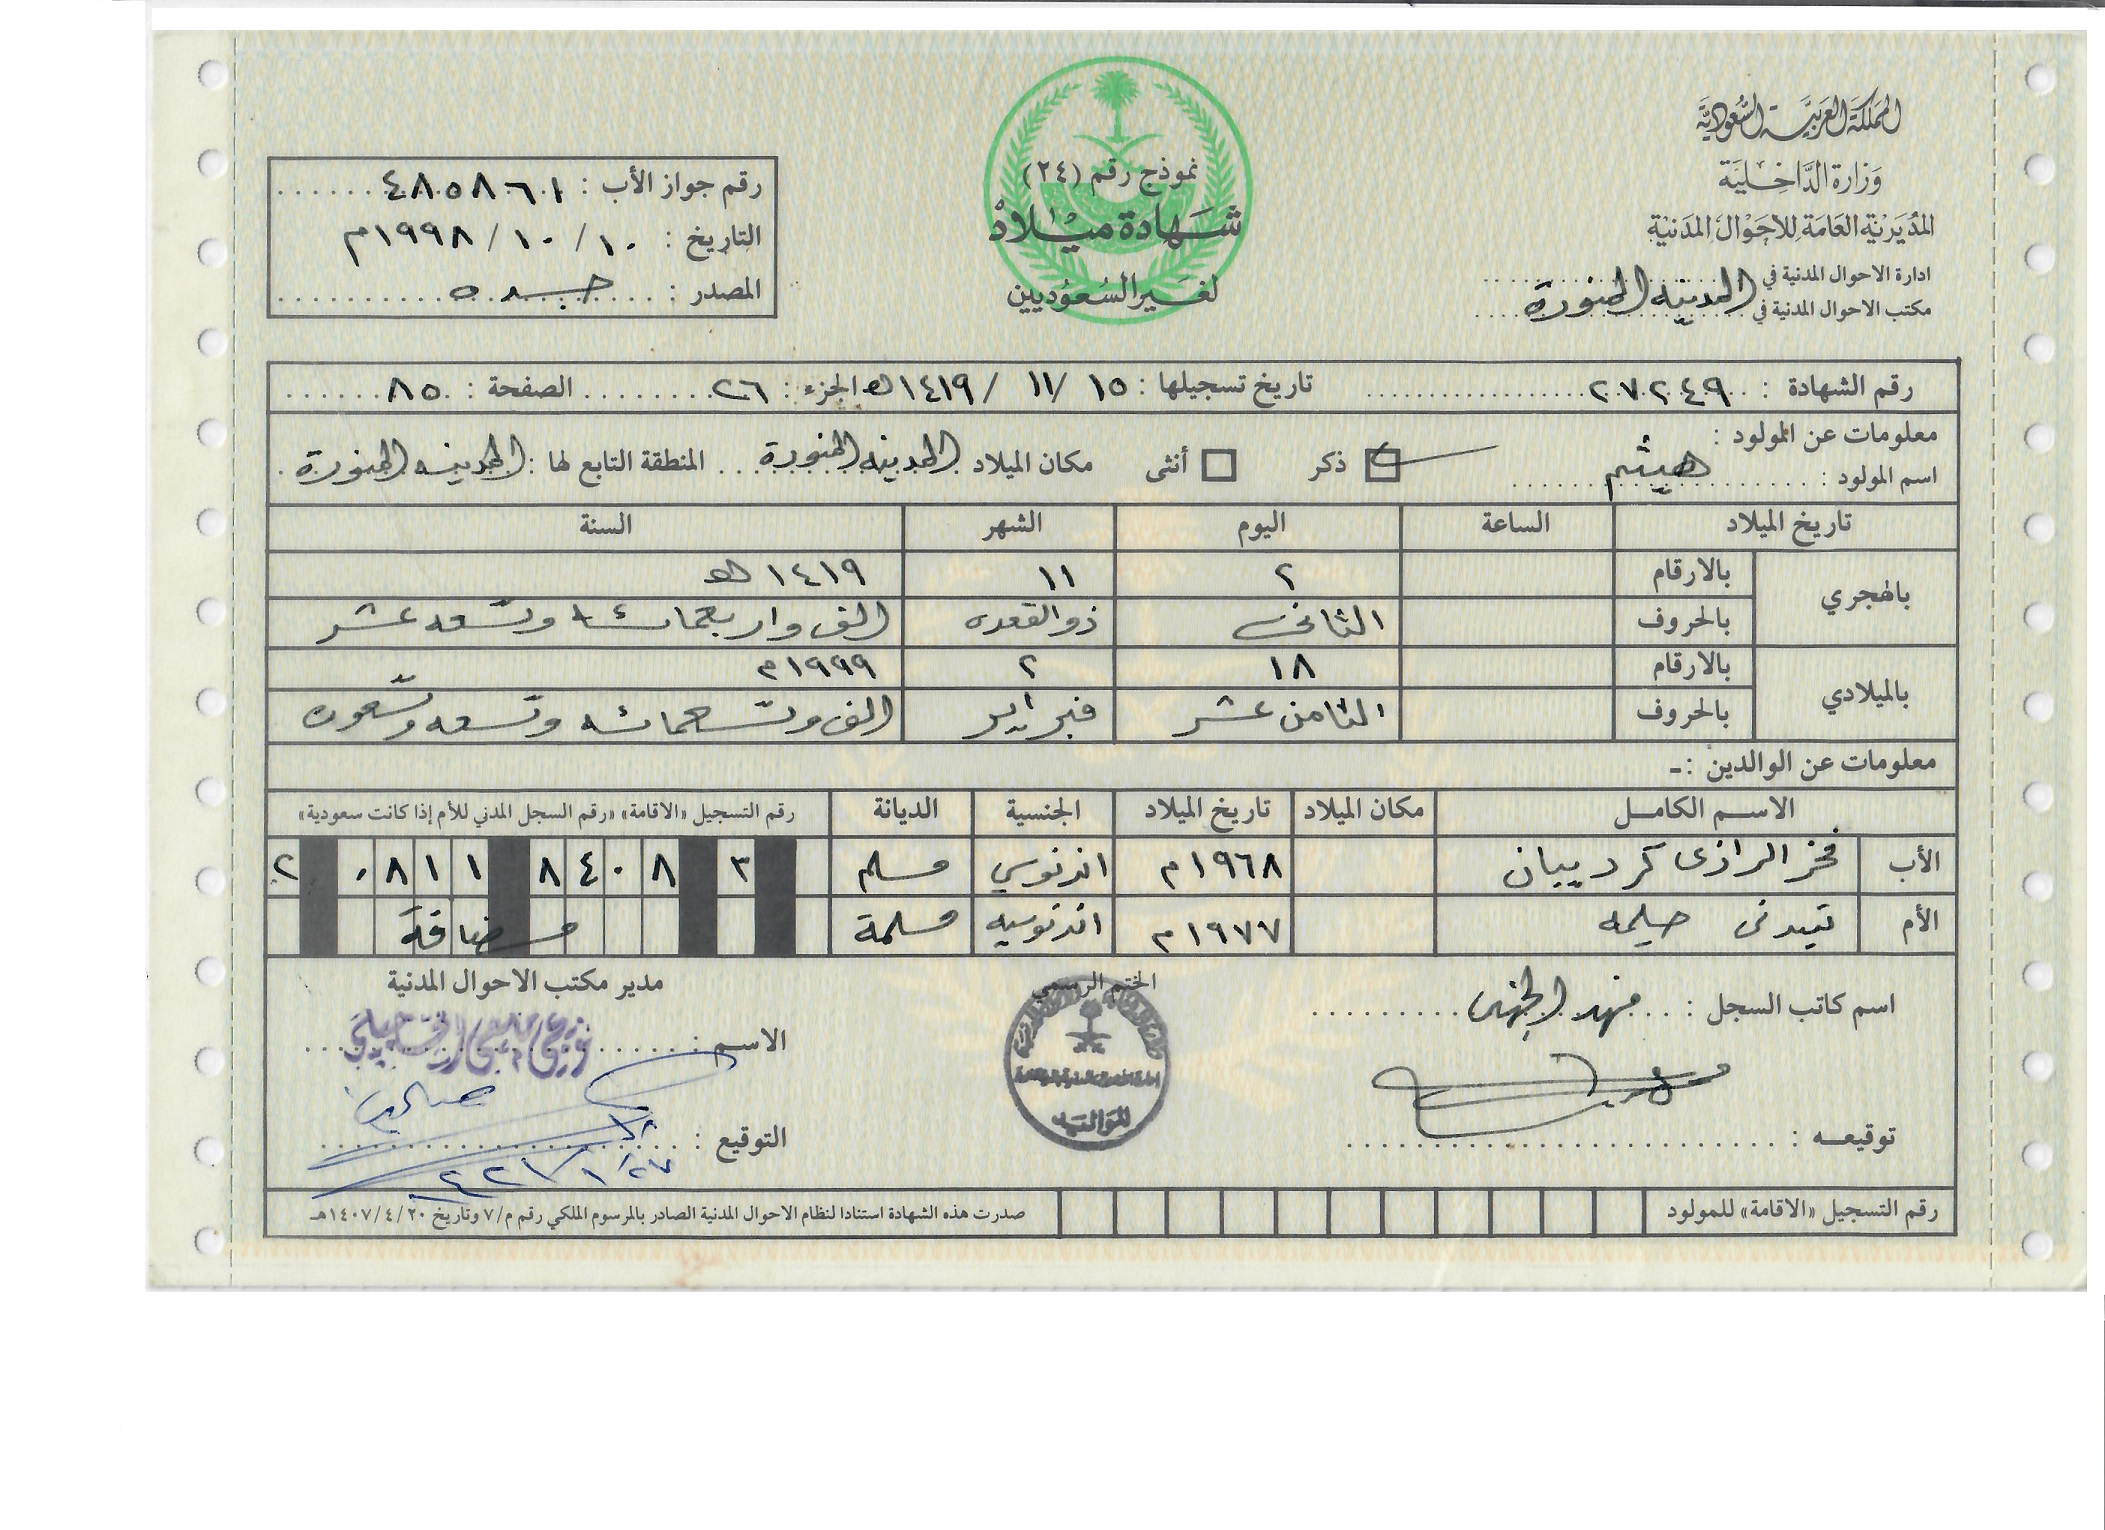 المملكة العربية السعودية
وزارة الداخلية
المديرية العامة للاحوال المدنية
ادارة الاحوال المدنية في
مكتب الاحوال المدنية في المدينه المنورة
نموذج رقم (٢٤)
شهادة ميلاد
لغير السعوديين
رقم جواز الأب : ٤٨٥٨٦١
التاريخ : ١٠ / ١٠ / ١٩٩٨م
المصدر : جده
رقم الشهادة : ٢٧٢٤٩ تاريخ تسجيلها : ١٥ / ١١ / ١٤١٩ هـ الجزء : ٢٦ الصفحة : ٨٥
معلومات عن المولود :
اسم المولود : هيثم ذكر أنثى مكان الميلاد المدينه المنورة المنطقة التابع لها : المدينه المنورة
تاريخ الميلاد الساعة اليوم الشهر السنة
بالهجري بالارقام ٢ ١١ ١٤١٩ هـ
بالحروف الثاني ذو القعده الف واربعمائه وتسعه عشر
بالميلادي بالارقام ١٨ ٢ ١٩٩٩م
بالحروف الثامن عشر فبراير الف وتسعمائه وتسعه وتسعون
معلومات عن الوالدين :-
الاسم الكامل مكان الميلاد تاريخ الميلاد الجنسية الديانة رقم التسجيل «الاقامة» «رقم السجل المدني للأم إذا كانت سعودية»
الأب فخر الرازى كرد يبان ١٩٦٨م اندنوسي مسلم ٢ ٠٨١١ ٨٤٠٨ ٣
الأم تيدنى حليمه ١٩٧٧م اندنوسيه مسلمة مضافة
اسم كاتب السجل : فهد الجهني
توقيعه :
الختم الرسمي
للمواليد
مدير مكتب الاحوال المدنية
الاسم :
التوقيع :
١٤٢١/١/٢٧
رقم التسجيل «الاقامة» للمولود
صدرت هذه الشهادة استنادا لنظام الاحوال المدنية الصادر بالمرسوم الملكي رقم م/٧ وتاريخ ١٤٠٧/٤/٢٠هـ